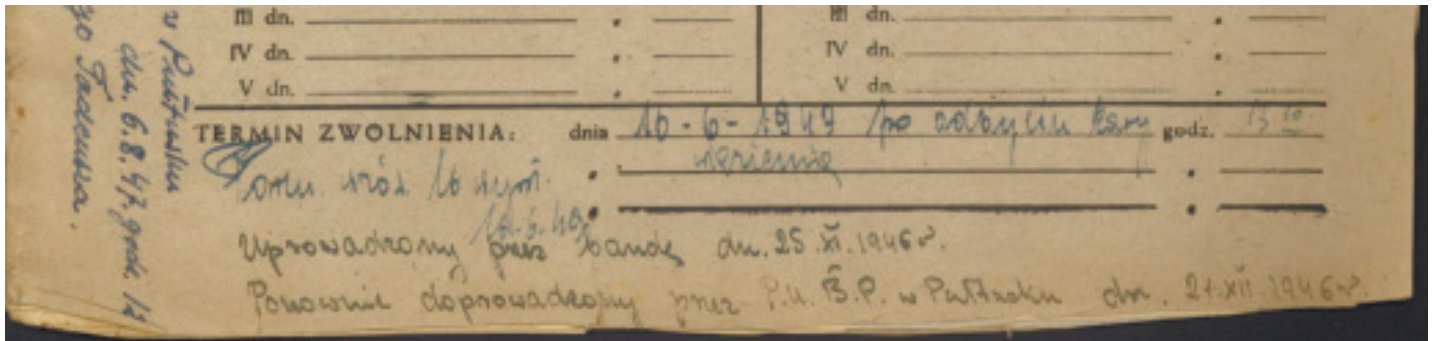 III dn. III dn.
IV dn. IV dn.
V dn. V dn.
TERMIN ZWOLNIENIA: dnia 16-6-1949 po odbyciu kary godz. 13 10
więzienia
16.6.49
Uprowadzony przez bandę dn. 25.XI.1946 r.
Ponownie doprowadzony przez P.U.B.P. w Pułtusku dn. 21.XII.1946 r.
w Pułtusku
dn. 6.8.47 godz. 12
go Tadeusza.